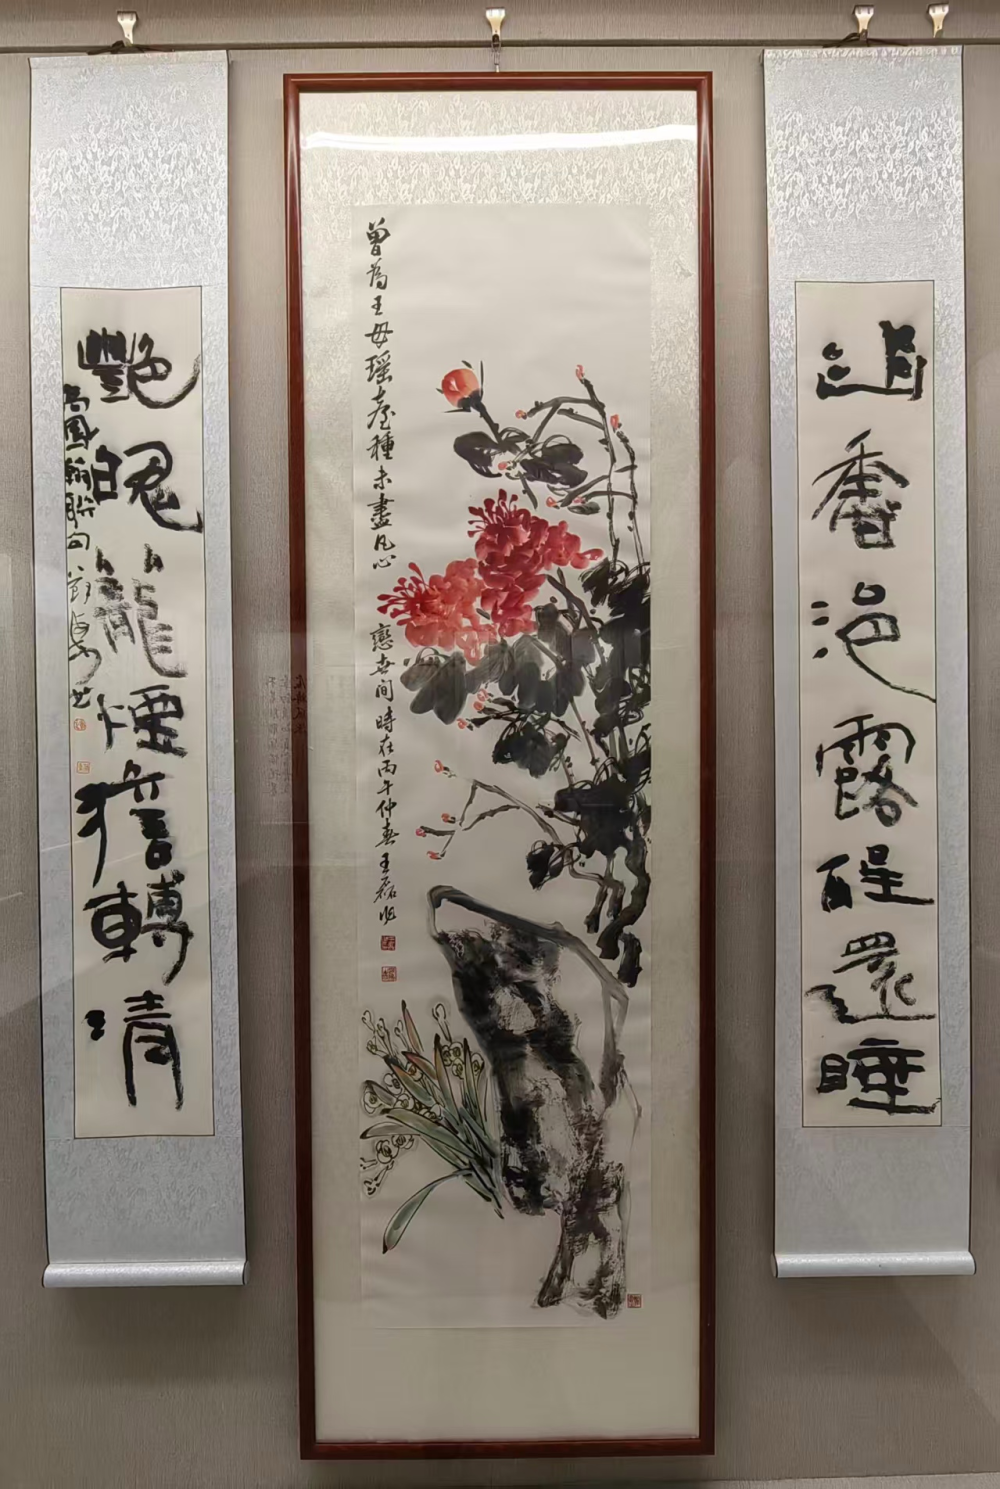 香浥露醒還睡
曾為王母瑶臺種未盡凡心戀世間時在丙午仲春王磊作
艷魄籠煙澹轉清
高鳳翰联句